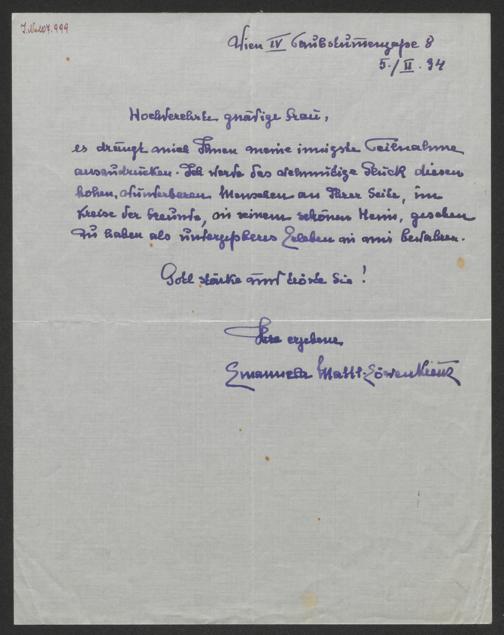 J.N. 207.999
Wien IV Taubstummengasse 8
5./II. 34
Hochverehrte gnädige Frau,
es drängt mich Ihnen meine innigste Teilnahme
auszudrücken. Ich werde das wehmütige Glück diesen
hohen, wunderbaren Menschen an Ihrer Seite, im
Kreise der Freunde, in seinem schönen Heim, gesehen
zu haben als unvergessbares Erleben in mir bewahren.
Gott stärke und tröste Sie!
Ihre ergebene
Emanuela Mattl-Löwenkreuz